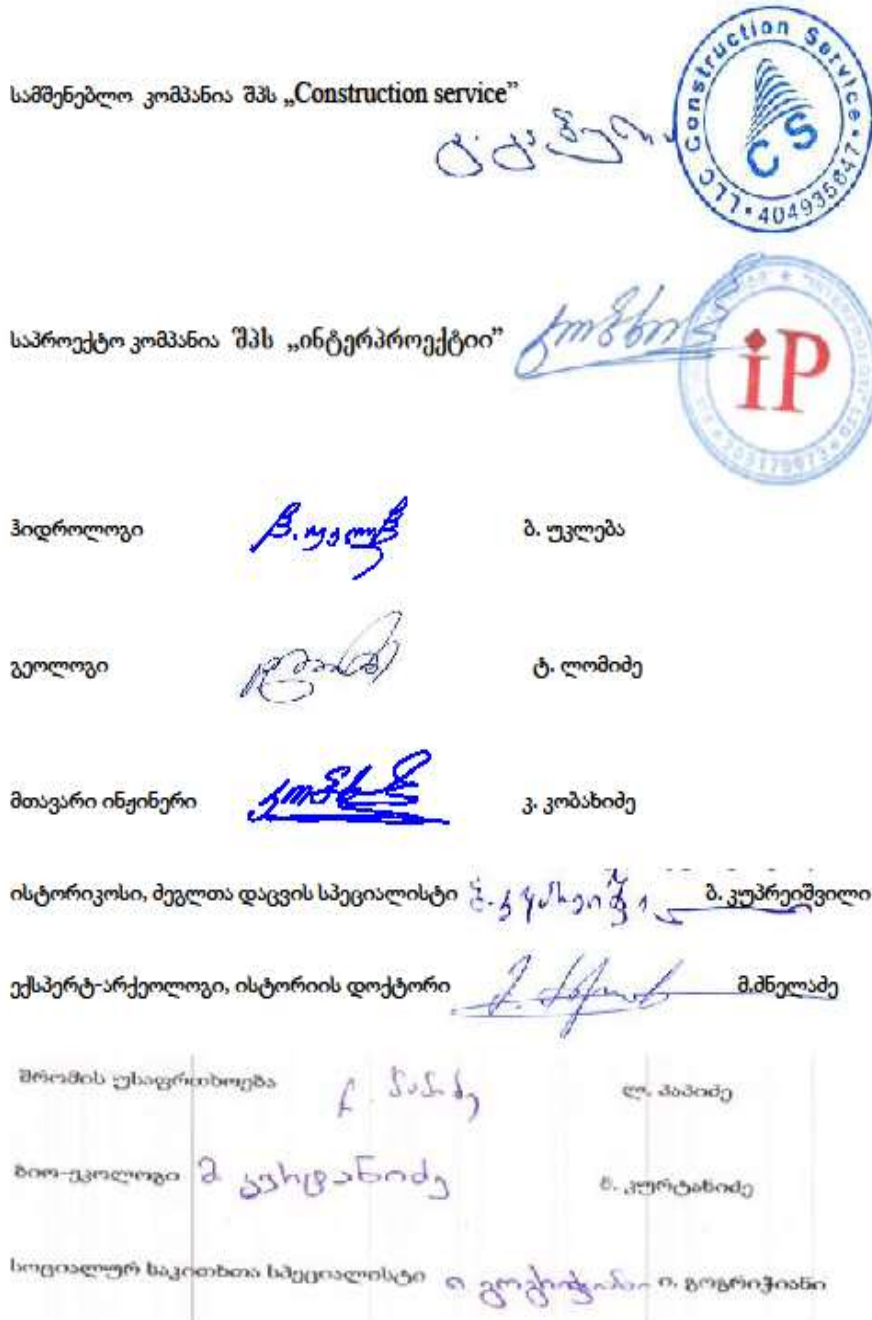 სამშენებლო კომპანია შპს „Construction service”
LLC Construction Service • 404935847 •
CS
საპროექტო კომპანია შპს „ინტერპროექტიი”
iP
ჰიდროლოგი ბ. უკლება
გეოლოგი ტ. ლომიძე
მთავარი ინჟინერი კ. კობახიძე
ისტორიკოსი, ძეგლთა დაცვის სპეციალისტი ბ. კუპრეიშვილი
ექსპერტ-არქეოლოგი, ისტორიის დოქტორი მ.ძნელაძე
შრომის უსაფრთხოება ლ. პაპიძე
ბიო-ეკოლოგი მ. კურტანიძე მ. კურტანიძე
სოციალურ საკითხთა სპეციალისტი ი გოგრიჭიანი ი. გოგრიჭიანი